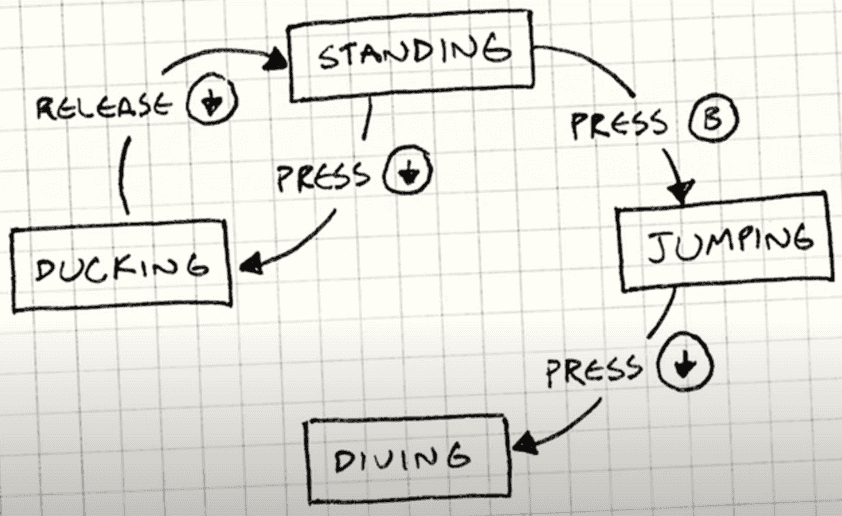 STANDING
RELEASE ↓
PRESS B
PRESS ↓
DUCKING
JUMPING
PRESS ↓
DIVING